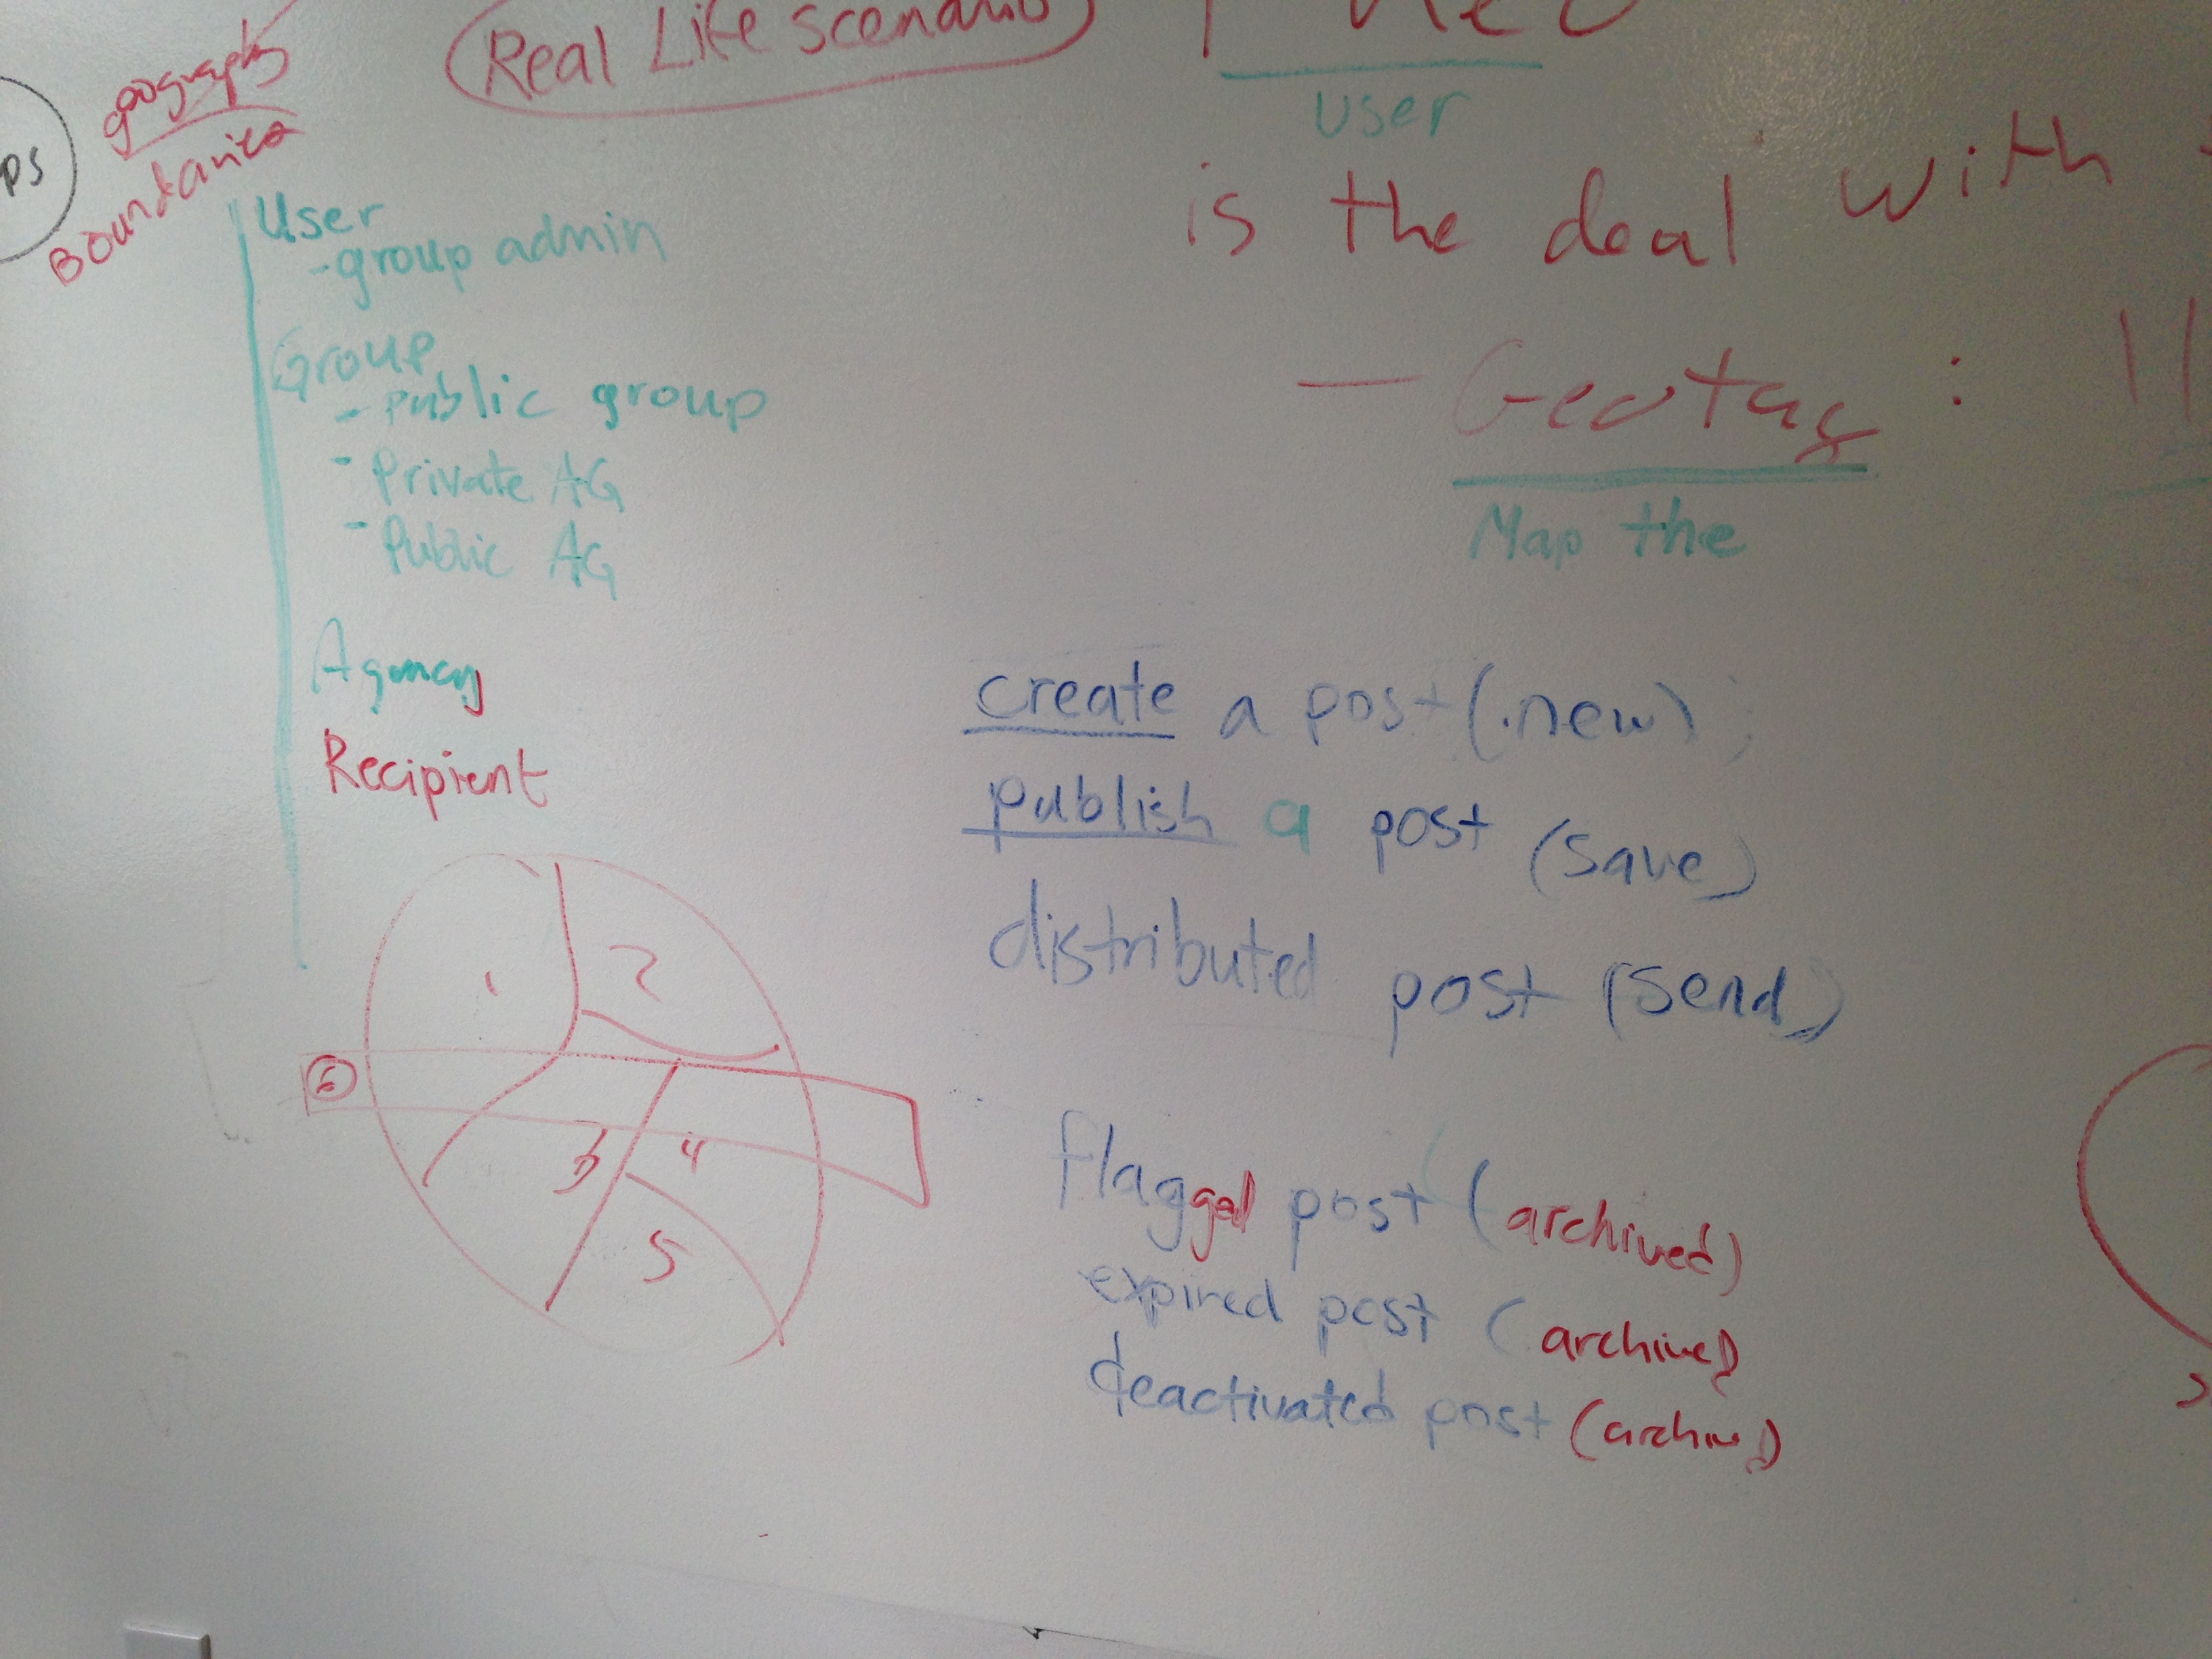 Real Life scenario
geography
Boundaries
ps
User
-group admin
Group
- public group
- Private AG
- Public AG
Agency
Recipient
1
2
3
4
5
6
user
is the deal with
— Geotag :
Map the
create a post (.new)
publish a post (save)
distributed post (send)
flagged post (archived)
expired post (archived)
deactivated post (archived)